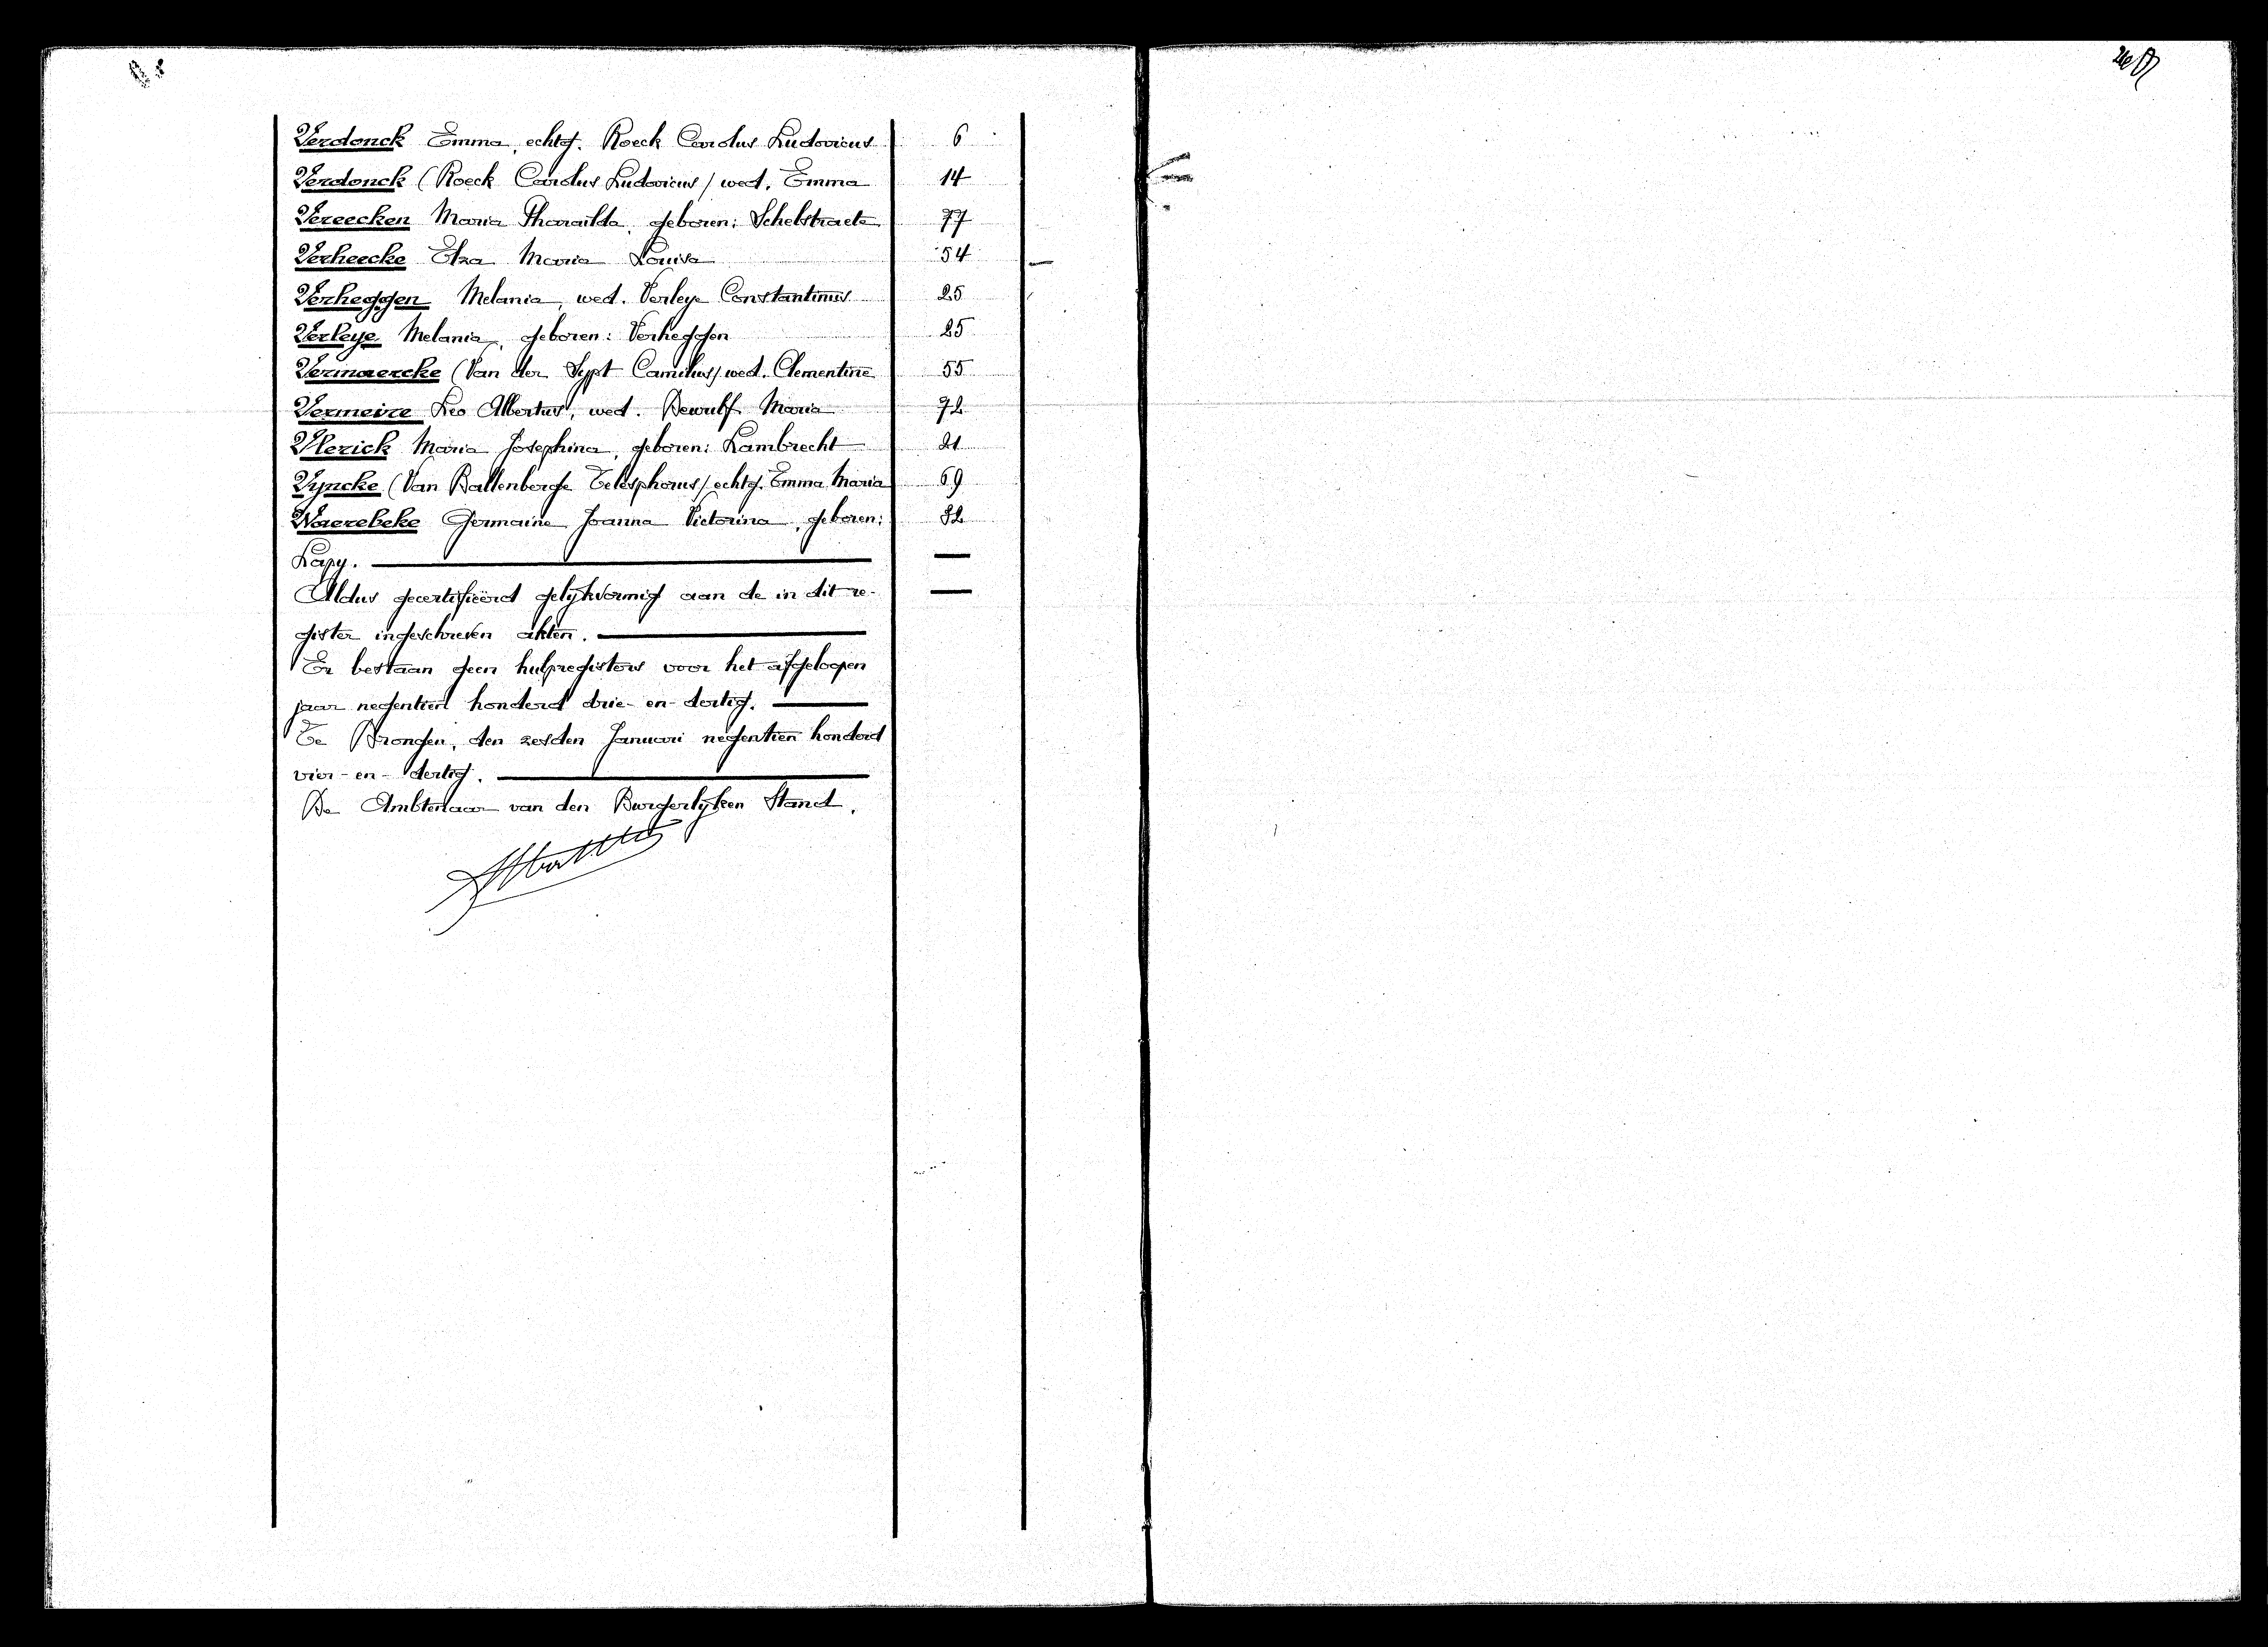 Verdonck Emma, echtg. Roeck Carolus Ludovicus 6
Verdonck (Roeck Carolus Ludovicus) wed. Emma 14
Vereecken Maria Tharailda, geboren: Schelstraete 77
Verheecke Elza Maria Louisa 54
Verheggen Melania, wed. Verleye Constantinus 25
Verleye Melania, geboren: Verheggen 25
Vermaercke (Van der Sypt Camilus) wed. Clementine 55
Vermeire Leo Albertus, wed. Dewulf Maria 72
Vlerick Maria Josephina, geboren: Lambrecht 21
Vyncke (Van Ballenberghe Telesphorus) echtg. Emma Maria 69
Waerebeke Germaine Joanna Victorina, geboren: 82
Lapy.
Aldus gecertifieërd gelykvormig aan de in dit re-
gister ingeschreven akten.
Er bestaan geen hulpregisters voor het afgeloopen
jaar negentien honderd drie-en-dertig.
Te Drongen, den zesden Januari negentien honderd
vier-en-dertig.
De Ambtenaar van den Burgerlyken Stand,